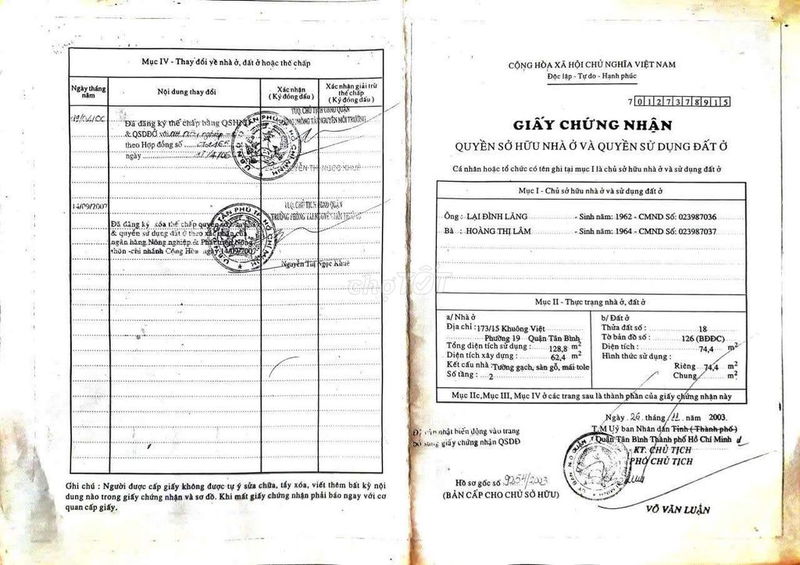 Mục IV - Thay đổi về nhà ở, đất ở hoặc thế chấp
Ngày tháng năm
Nội dung thay đổi
Xác nhận (Ký đóng dấu)
Xác nhận giải trừ thế chấp (Ký đóng dấu)
Đã đăng ký thế chấp bằng QSH
& QSDĐỞ
theo Hợp đồng số
ngày
14/09/2007
Đã đăng ký xóa thế chấp quyền
& quyền sử dụng đất ở theo
ngân hàng Nông nghiệp & Phát triển Nông
thôn -chi nhánh Cộng Hòa ngày 14/09/2007
Nguyễn Thị Ngọc Khuê
Ghi chú : Người được cấp giấy không được tự ý sửa chữa, tẩy xóa, viết thêm bất kỳ nội
dung nào trong giấy chứng nhận và sơ đồ. Khi mất giấy chứng nhận phải báo ngay với cơ
quan cấp giấy.
chợTỐT
CỘNG HÒA XÃ HỘI CHỦ NGHĨA VIỆT NAM
Độc lập - Tự do - Hạnh phúc
7 0 1 2 7 3 7 8 9 1 5
GIẤY CHỨNG NHẬN
QUYỀN SỞ HỮU NHÀ Ở VÀ QUYỀN SỬ DỤNG ĐẤT Ở
Cá nhân hoặc tổ chức có tên ghi tại mục I là chủ sở hữu nhà ở và sử dụng đất ở
Mục I - Chủ sở hữu nhà ở và sử dụng đất ở
Ông : LẠI ĐÌNH LĂNG - Sinh năm: 1962 - CMND Số: 023987036
Bà : HOÀNG THỊ LÂM - Sinh năm: 1964 - CMND Số: 023987037
Mục II - Thực trạng nhà ở, đất ở
a/ Nhà ở
Địa chỉ : 173/15 Khuông Việt
Phường 19 Quận Tân Bình
Tổng diện tích sử dụng : 128,8 m2
Diện tích xây dựng : 62,4 m2
Kết cấu nhà : Tường gạch, sàn gỗ, mái tole
Số tầng : 2
b/ Đất ở
Thửa đất số : 18
Tờ bản đồ số : 126 (BĐĐC)
Diện tích : 74,4 m2
Hình thức sử dụng :
Riêng : 74,4 m2
Chung m2
Mục IIc, Mục III, Mục IV ở các trang sau là thành phần của giấy chứng nhận này
Ngày 26 tháng 11 năm 2003
T.M Uỷ ban Nhân dân Tỉnh ( Thành phố )
Quận Tân Bình Thành phố Hồ Chí Minh
KT. CHỦ TỊCH
PHÓ CHỦ TỊCH
VÕ VĂN LUẬN
nhật biến động vào trang
giấy chứng nhận QSDĐ
Hồ sơ gốc số 9254/2003
(BẢN CẤP CHO CHỦ SỞ HỮU)